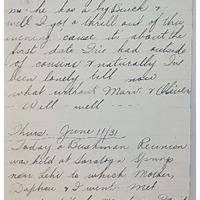 me. he has a big Buick &
well I got a thrill out of this
evening cause it about the
first date I've had outside
of cousins & naturally I've
been lonely till now
what without Marv. & Oliver
- Well - well - - - -
Thurs. June 11/31
Today a Bushman Reunion
was held at Saratoga Springs
near Lehi to which Mother,
Daphen & I went. Met